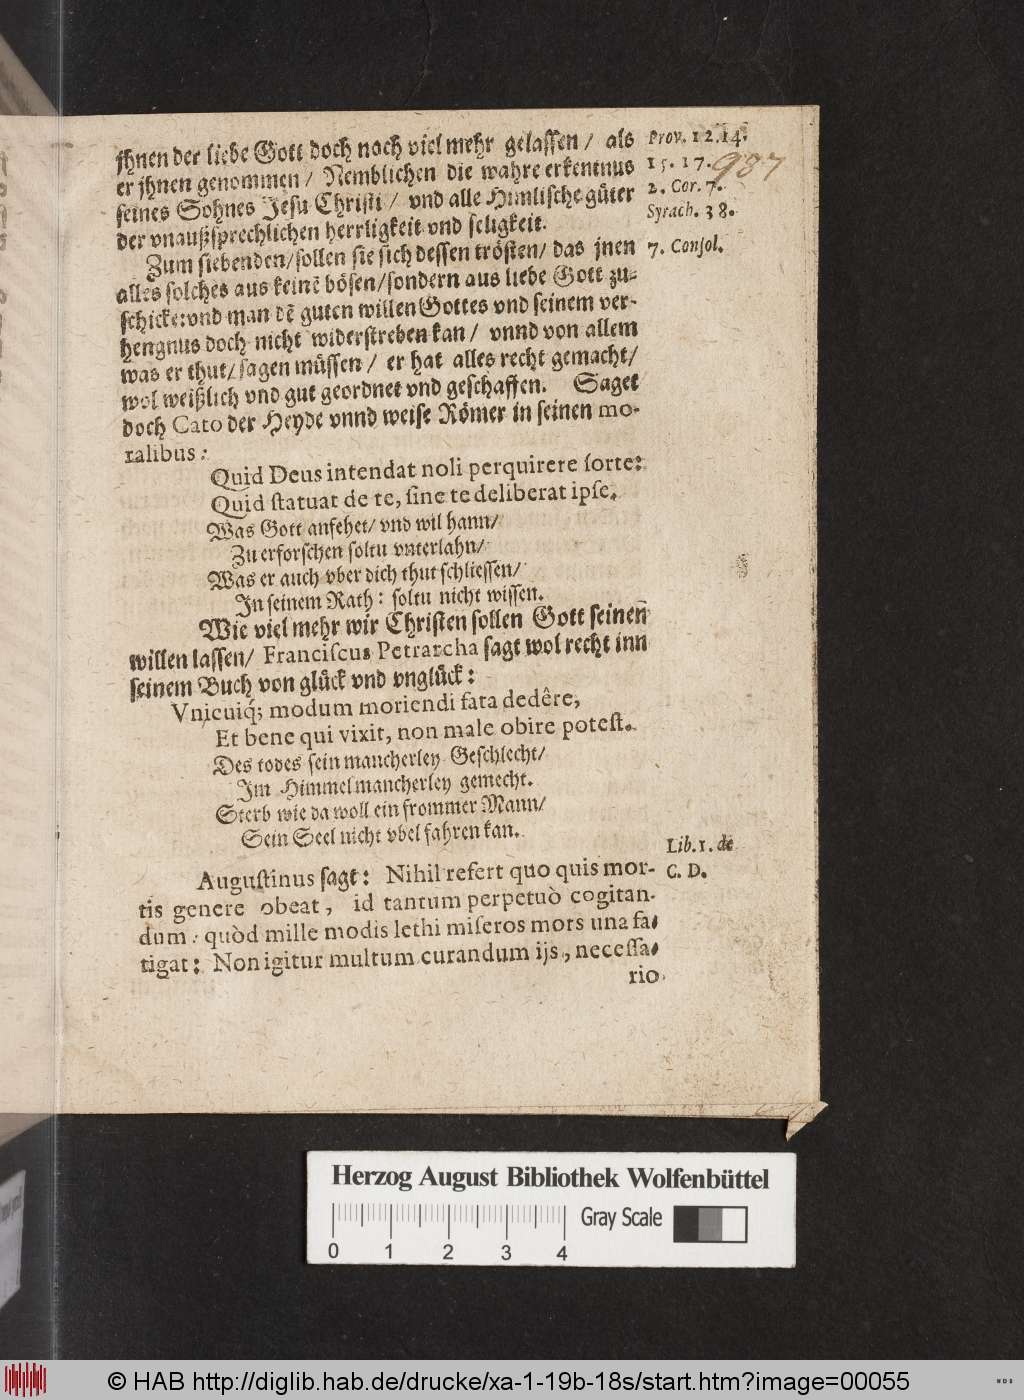 jhnen der liebe Gott doch noch viel mehr gelassen / als
er jhnen genommen / Nemblichen die wahre erkentnus
seines Sohnes Jesu Christi / vnd alle Himlische güter
der vnaußsprechlichen herrligkeit vnd seligkeit.
Prov. 12.14.
15. 17.
987
2. Cor. 7.
Syrach. 38.
Zum siebenden/sollen sie sich dessen trösten/ das jnen
7. Consol.
alles solches aus keinē bösen/sondern aus liebe Gott zu-
schicke:vnd man dē guten willen Gottes vnd seinem ver-
hengnus doch nicht widerstreben kan / vnnd von allem
was er thut/ sagen müssen / er hat alles recht gemacht/
wol weißlich vnd gut geordnet vnd geschaffen. Saget
doch Cato der Heyde vnnd weise Römer in seinen mo-
ralibus:
Quid Deus intendat noli perquirere ſorte:
Quid ſtatuat de te, ſine te deliberat ipſe.
Was Gott ansehet/ vnd wil hann/
Zu erforschen soltu vnterlahn/
Was er auch vber dich thut schliessen/
In seinem Rath: soltu nicht wissen.
Wie viel mehr wir Christen sollen Gott seinen
willen lassen/ Franciſcus Petrarcha sagt wol recht inn
seinem Buch von glück vnd vnglück:
Vnicuiq́; modum moriendi fata dedêre,
Et bene qui vixit, non male obire poteſt.
Des todes sein mancherley Geschlecht/
Im Himmel mancherley gemecht.
Sterb wie da woll ein frommer Mann/
Sein Seel nicht vbel fahren kan.
Auguſtinus sagt: Nihil refert quo quis mor-
Lib. 1. de
C. D.
tis genere obeat, id tantum perpetuò cogitan-
dum: quòd mille modis lethi miſeros mors una fa-
tigat: Non igitur multum curandum ijs, neceſſa-
rio
Herzog August Bibliothek Wolfenbüttel
0 1 2 3 4
Gray Scale
© HAB http://diglib.hab.de/drucke/xa-1-19b-18s/start.htm?image=00055